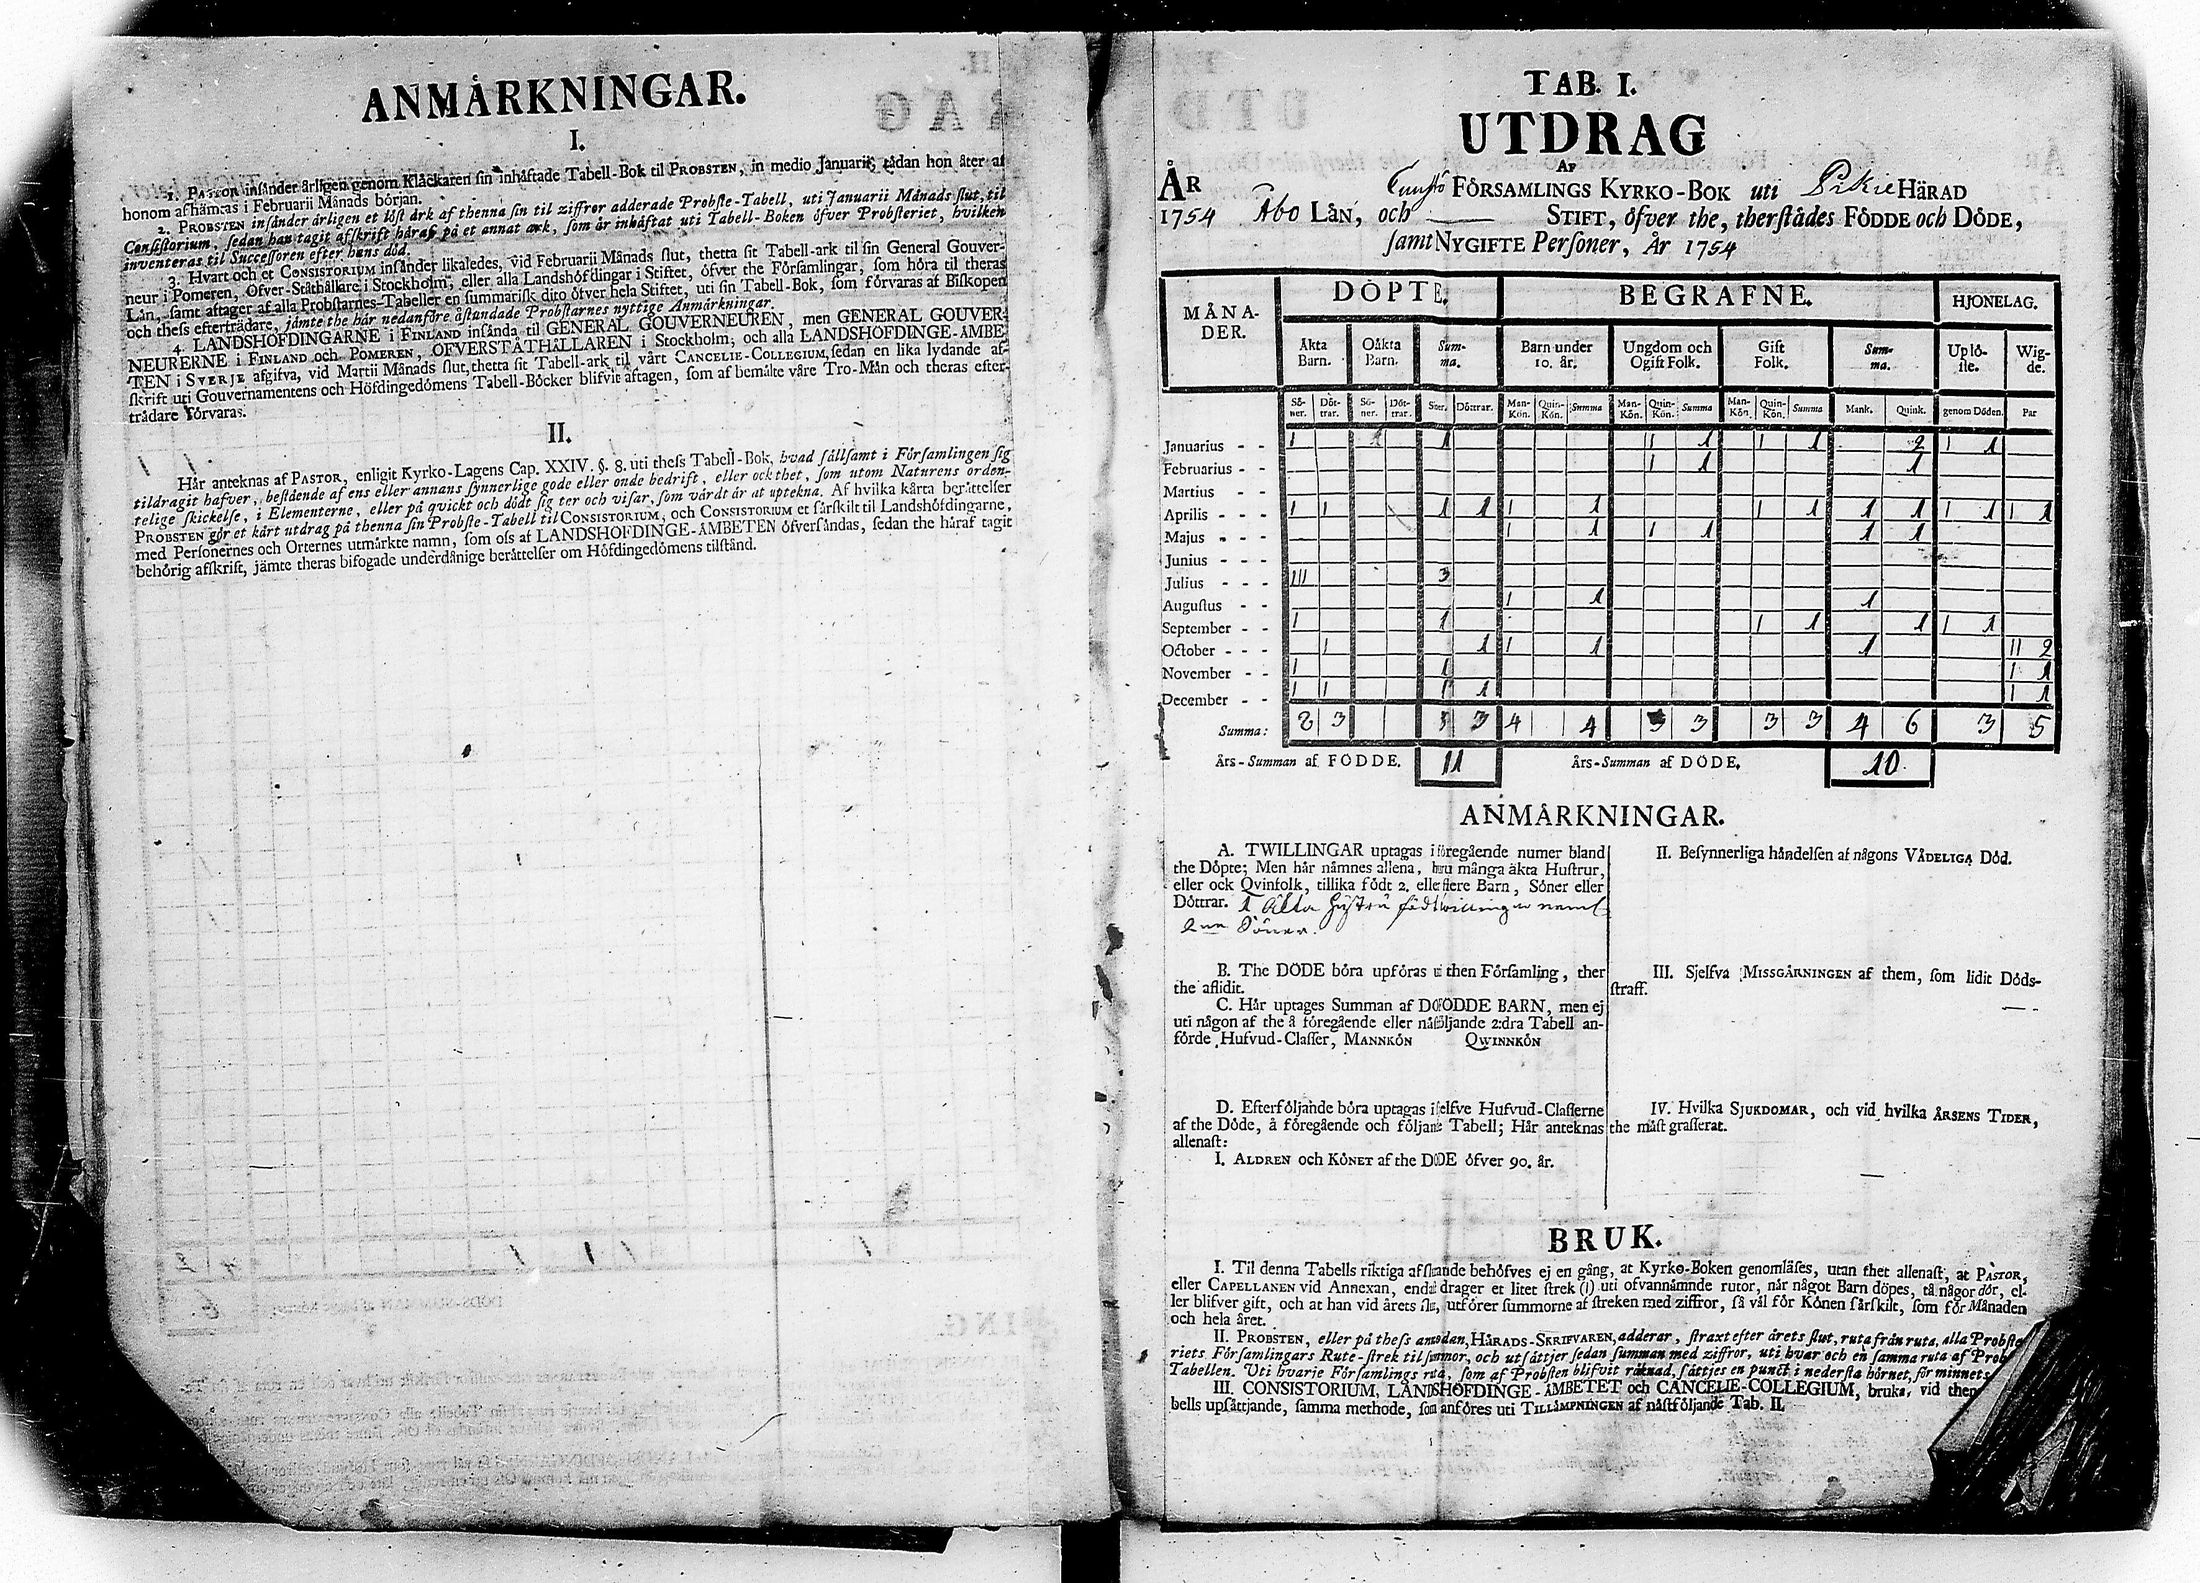 ANMÅRKNINGAR.
I.
1. PASTOR insånder årligen genom Klåckaren sin inhåftade Tabell-Bok til PROBSTEN, in medio Januarii, sådan hon åter af
honom afhämtas i Februarii Månads början.
2. PROBSTEN insånder årligen et löst årk af thenna sin til ziffror adderade Probste-Tabell, uti Januarii Månads slut, til
Consistorium, sedan han tagit afskrift håraf på et annat ark, som år inhåftat uti Tabell-Boken öfver Probsteriet, hvilken
inventeras til Successoren efter hans död.
3. Hvart och et CONSISTORIUM insånder likaledes, vid Februarii Månads slut, thetta sit Tabell-ark til sin General Gouver-
neur i Pomeren, Öfver-Ståthållare i Stockholm, eller alla Landshöfdingar i Stiftet, öfver the Församlingar, som höra til theras
Lån, samt aftager af alla Probstarnes-Tabeller en summarisk dito öfver hela Stiftet, uti sin Tabell-Bok, som förvaras af Biskopen
och thess eftertrådare, jåmte the hår nedanföre åstundade Probstarnes nyttige Anmårkningar.
4. LANDSHÖFDINGARNE i FINLAND insånda til GENERAL GOUVERNEUREN, men GENERAL GOUVER-
NEURERNE i FINLAND och POMEREN, ÖFVERSTÅTHÅLLAREN i Stockholm, och alla LANDSHÖFDINGE-ÅMBE-
TEN i SVERJE afgifva, vid Martii Månads slut, thetta sit Tabell-ark til vårt CANCELIE-COLLEGIUM, sedan en lika lydande af-
skrift uti Gouvernamentens och Höfdingedömens Tabell-Böcker blifvit aftagen, som af bemålte våre Tro-Mån och theras efter-
trådare förvaras.
II.
Hår anteknas af PASTOR, enligit Kyrko-Lagens Cap. XXIV. §. 8. uti thess Tabell-Bok, hvad sållsamt i Församlingen sig
tildragit hafver, bestående af ens eller annans synnerlige gode eller onde bedrift, eller ock thet, som utom Naturens orden-
telige skickelse, i Elementerne, eller på qvickt och dödt sig ter och visar, som vårdt år at uptekna. Af hvilka kårta beråttelser
PROBSTEN gör et kårt utdrag på thenna sin Probste-Tabell til CONSISTORIUM, och CONSISTORIUM et sårskilt til Landshöfdingarne,
med Personernes och Orternes utmårkte namn, som oss af LANDSHÖFDINGE-ÅMBETEN öfversåndas, sedan the håraf tagit
behörig afskrift, jämte theras bifogade underdånige beråttelser om Höfdingedömens tilstånd.
TAB. I.
UTDRAG
AF
ÅR FÖRSAMLINGS KYRKO-BOK uti Pikie HÄRAD
1754 Åbo LÅN, och STIFT, öfver the, therstådes FÖDDE och DÖDE,
samt NYGIFTE Personer, År 1754
MÅNA-
DER. DÖPTE. BEGRAFNE. HJONELAG.
Äkta
Barn. Oåkta
Barn. Sum-
ma. Barn under
10. år. Ungdom och
Ogift Folk. Gift
Folk. Sum-
ma. Uplö-
ste. Wig-
de.
Sö-
ner. Döt-
trar. Sö-
ner. Döt-
trar. Söner. Döttrar. Man-
Kön. Quin-
Kön. Summa Man-
Kön. Quin-
Kön. Summa Man-
Kön. Quin-
Kön. Summa Mank. Quink. genom Döden. Par
Januarius - - I 1 1 II 1 I 1 2 I 1
Februarius - - I 1 1
Martius - -
Aprilis - - I I 1 1 I 1 I 1 1 1 I 1 I 1
Majus - - I 1 I 1 1 1
Junius - - -
Julius - - - III 3
Augustus - - I 1 1
September - - I 1 I 1 1 I 1
October - - - I 1 I 1 1 II 2
November - - I 1 I 1
December - - I I 1 1 I 1
Summa: 8 3 3 4 4 3 3 3 3 4 6 3 5
Års-Summan af FÖDDE. 11 Års-Summan af DÖDE. 10
ANMÅRKNINGAR.
A. TWILLINGAR uptagas i föregående numer bland
the Döpte; Men hår nåmnes allena, huru många äkta Hustrur,
eller ock Qvinfolk, tillika födt 2. eller flere Barn, Söner eller
Döttrar. 1 Äkta Hustru född twillingar neml.
Söner.
B. The DÖDE böra upföras uti then Församling, ther
the aflidit.
C. Hår uptages Summan af DÖDFÖDDE BARN, men ej
uti någon af the å föregående eller nåstföljande 2:dra Tabell an-
förde Hufvud-Classer, MANNKÖN QWINNKÖN
D. Efterföljande böra uptagas i sjelfve Hufvud-Classerne
af the Döde, å föregående och följande Tabell; Hår anteknas
allenast:
I. ALDREN och KÖNET af the DÖDE öfver 90. år.
II. Besynnerliga håndelsen af någons VÅDELIGA Död.
III. Sjelfva MISSGÅRNINGEN af them, som lidit Döds-
straff.
IV. Hvilka SJUKDOMAR, och vid hvilka ÅRSENS TIDER,
the måst grasserat.
BRUK.
I. Til denna Tabells riktiga afstående behöfves ej en gång, at Kyrko-Boken genomläses, utan thet allenast, at PASTOR,
eller CAPELLANEN vid Annexan, endast drager et litet strek (I) uti ofvannåmnde rutor, når något Barn döpes, tå någor dör, el-
ler blifver gift, och at han vid årets slut, utförer summorne af streken med ziffror, så vål för Könen sårskilt, som för Månaden
och hela året.
II. PROBSTEN, eller på thess anmodan, HÅRADS-SKRIFVAREN, adderar, straxt efter årets slut, ruta från ruta, alla Probste-
riets Församlingars Rute-strek til summor, och utsåttjer sedan summan med ziffror, uti hvar och en samma ruta af Prob
Tabellen. Uti hvarje Församlings ruta, som af Probsten blifvit råknad, såttjes en punct i nedersta hörnet, för minnets
III. CONSISTORIUM, LANDSHÖFDINGE-ÅMBETET och CANCELIE-COLLEGIUM, bruka, vid then
bells upsåttjande, samma methode, som anföres uti TILLÅMPNINGEN af nåstföljande Tab. II.